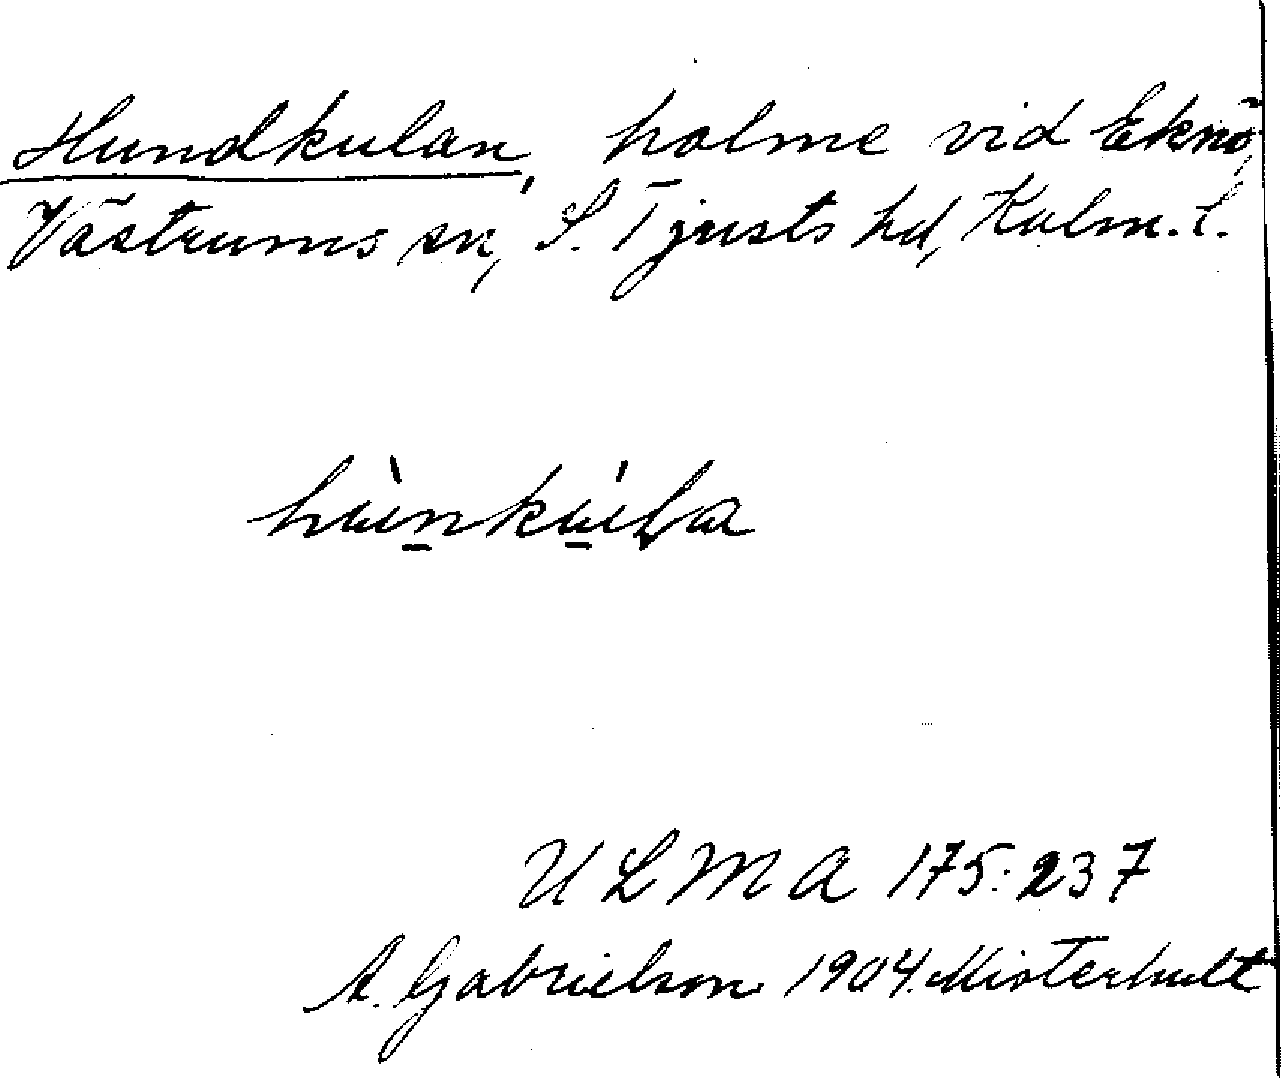 Hundkulan, holme vid Eknö,
Västrums sn, S. Tjusts hd, Kalm. l.
hùnkúla
ULMA 175:237
A. Gabrielson 1904. Misterhult